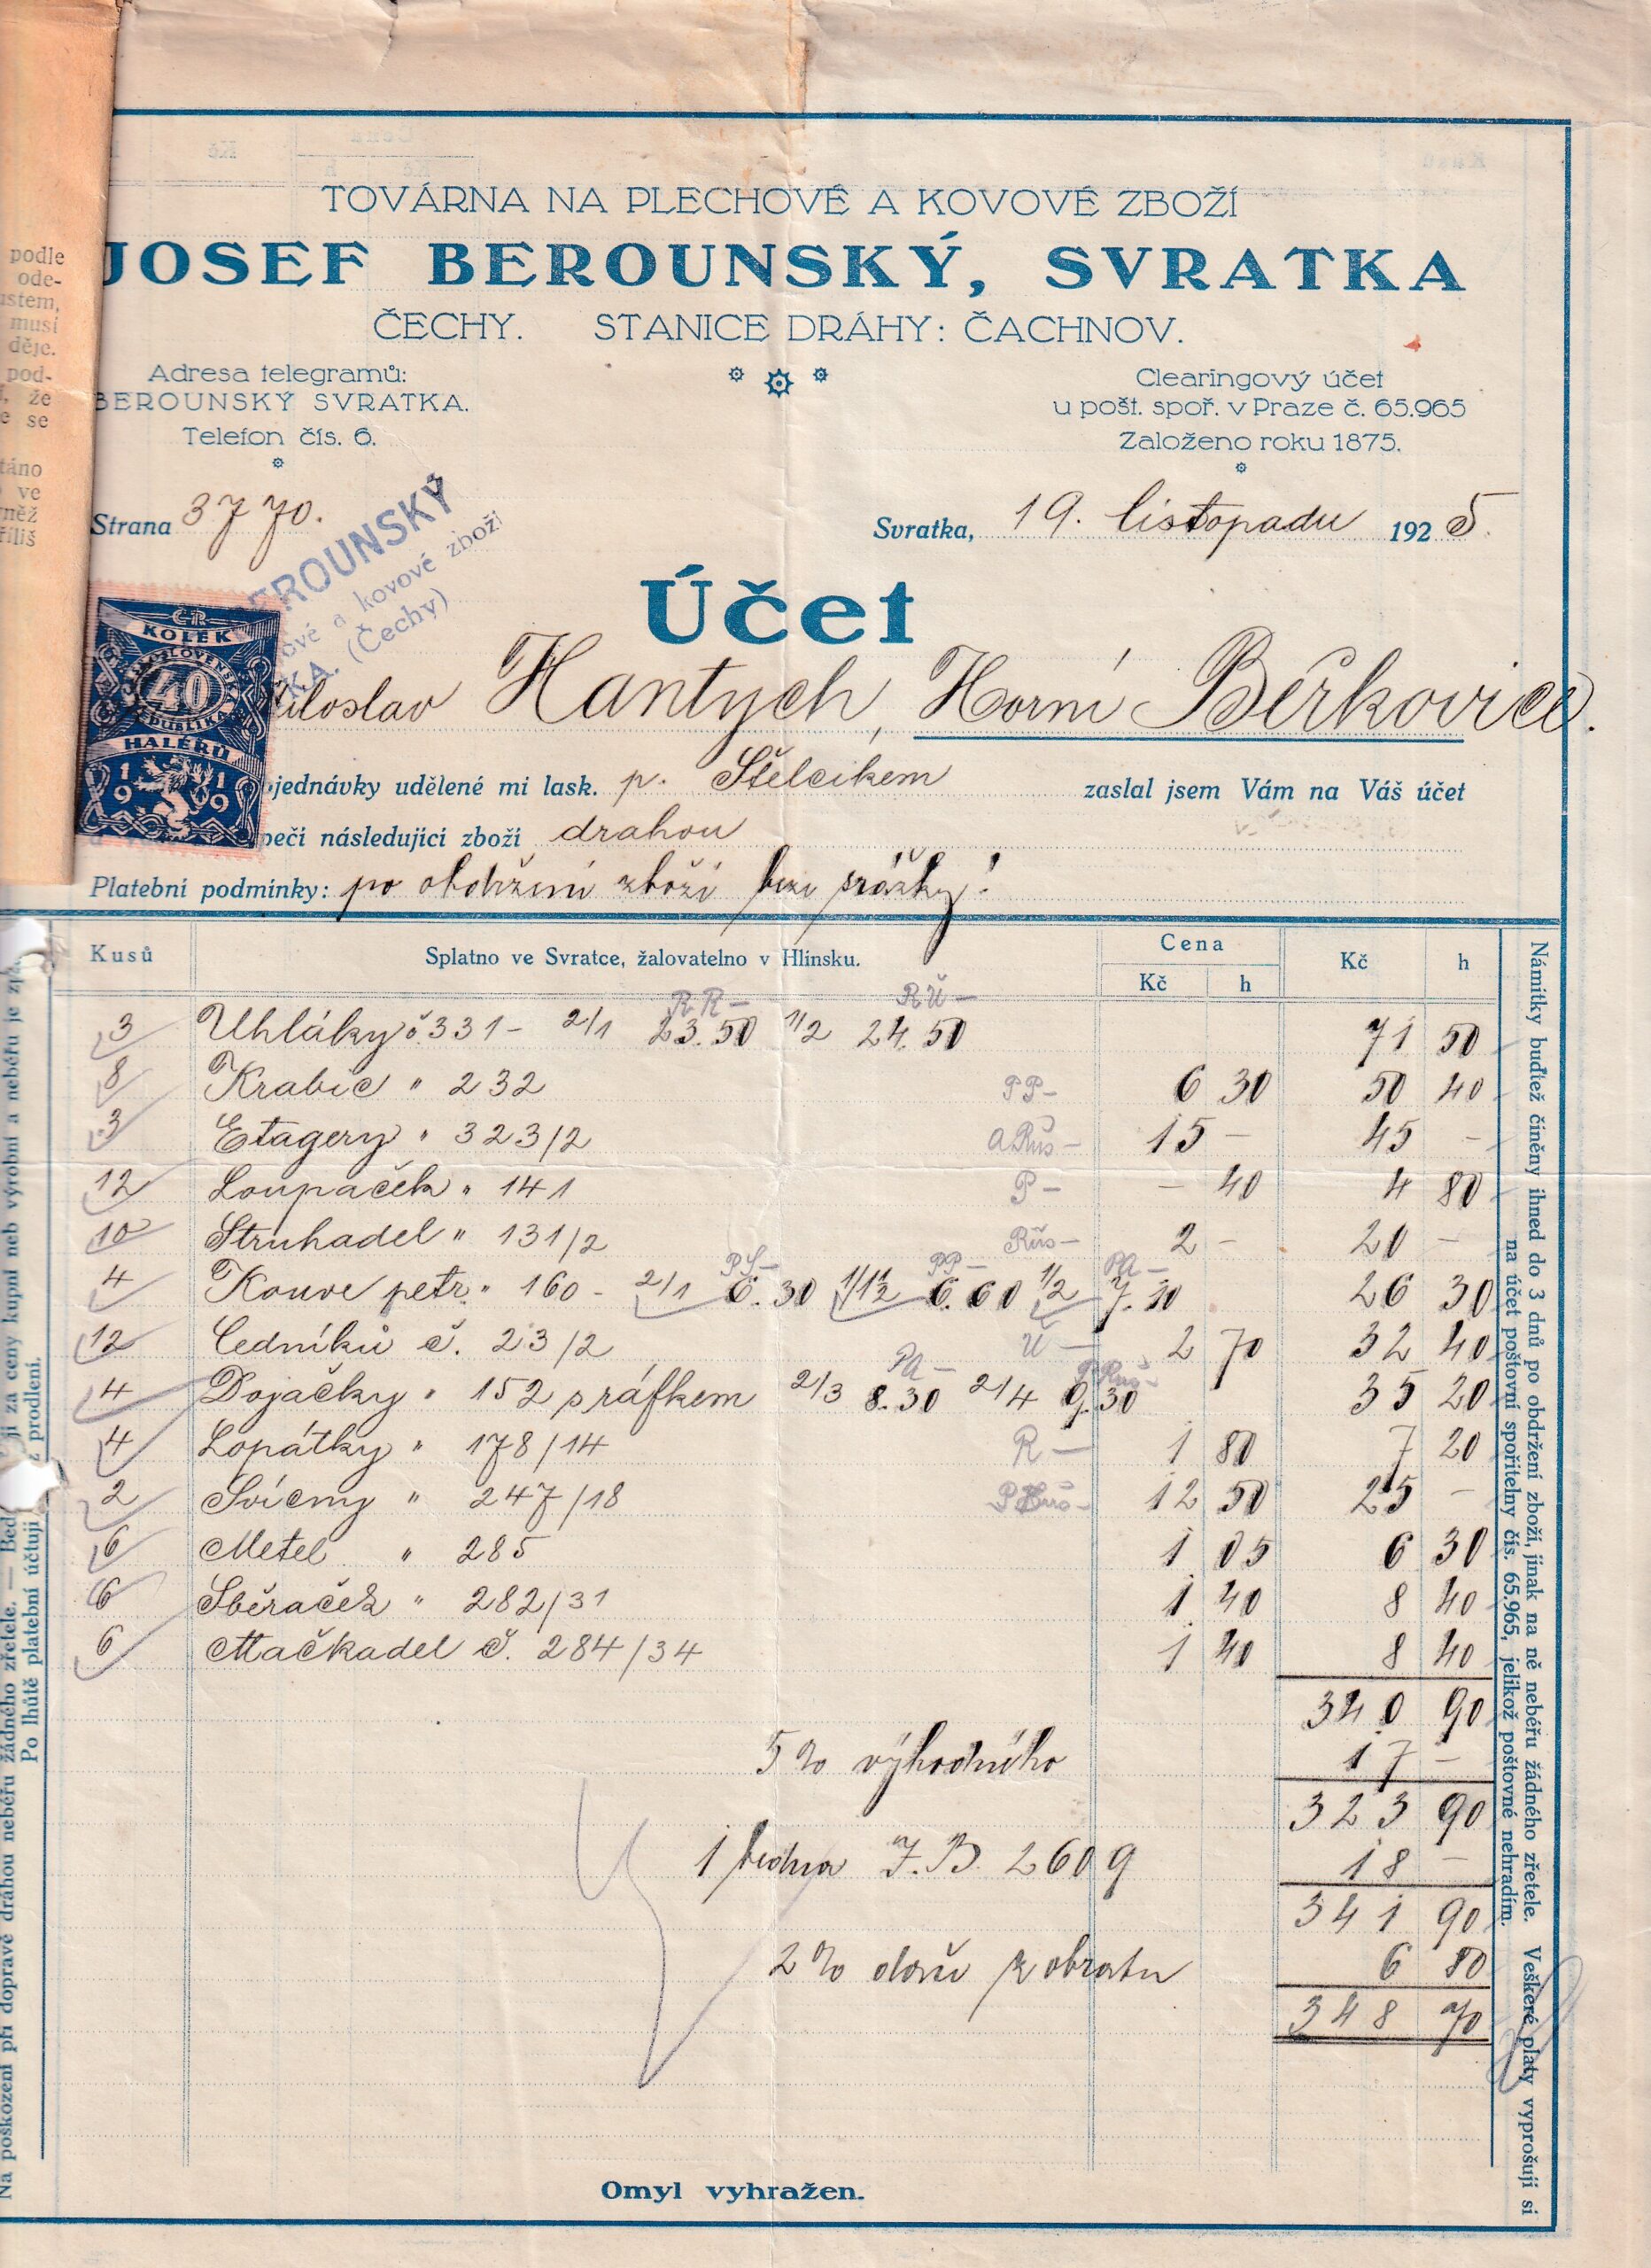 podle
ode-
ustem,
musí
děje.
pod-
, že
e se
táno
ve
něž
říliš
TOVÁRNA NA PLECHOVÉ A KOVOVÉ ZBOŽÍ
JOSEF BEROUNSKÝ, SVRATKA
ČECHY. STANICE DRÁHY: ČACHNOV.
Adresa telegramů:
BEROUNSKÝ SVRATKA.
Telefon čís. 6.
Clearingový účet
u pošt. spoř. v Praze č. 65.965
Založeno roku 1875.
Strana 3770.
Svratka, 19. listopadu 1925.
EROUNSKÝ
ové a kovové zboží
KA. (Čechy)
Účet
ČR
KOLEK
ČESKOSLOVENSKÁ
40
REPUBLIKA
HALÉŘŮ
1919
iloslav Hantych, Horní Beřkovice.
jednávky udělené mi lask. p. Štelcikem zaslal jsem Vám na Váš účet
pečí následující zboží drahou
Platební podmínky: po obdržení zboží beze srážky!
Kusů Splatno ve Svratce, žalovatelno v Hlinsku. Cena Kč h Kč h
RR— RŮ—
3 Uhláky č 331 - 2/1 23.50 1/2 24.50 71 50
8 Krabic " 232 PP— 6 30 50 40
3 Etagery " 323/2 ARůs— 15 — 45 —
12 Loupaček " 141 P— — 40 4 80
10 Struhadel " 131/2 Růs— 2 — 20 —
PS— PP— PA—
4 Konve petr. " 160 - 2/1 6.30 1/1½ 6.60 1/2 7.10 26 30
12 Cedníků č. 23/2 Ů— 2 70 32 40
PA— PRůs—
4 Dojačky " 152 s ráfkem 2/3 8.30 2/4 9.30 35 20
4 Lopátky " 178/14 R— 1 80 7 20
2 Svícny " 247/18 12 50 25 —
6 Metel " 285 1 05 6 30
6 Sběraček " 282/31 1 40 8 40
6 Mačkadel č. 284/34 1 40 8 40
340 90
5% výhodného 17 —
323 90
1 bedna J.B. 2609 18 —
341 90
2% daně z obratu 6 80
348 70
Omyl vyhražen.
Námitky buďtež činěny ihned do 3 dnů po obdržení zboží, jinak na ně neběřu žádného zřetele. Veškeré platy vyprošuji si
na účet poštovní spořitelny čís. 65.965, jelikož poštovné nehradím.
Na poškození při dopravě dráhou neběřu žádného zřetele. — Bed jí za ceny kupní neb výrobní a neběřu je zpě
Po lhůtě platební účtuji z prodlení.